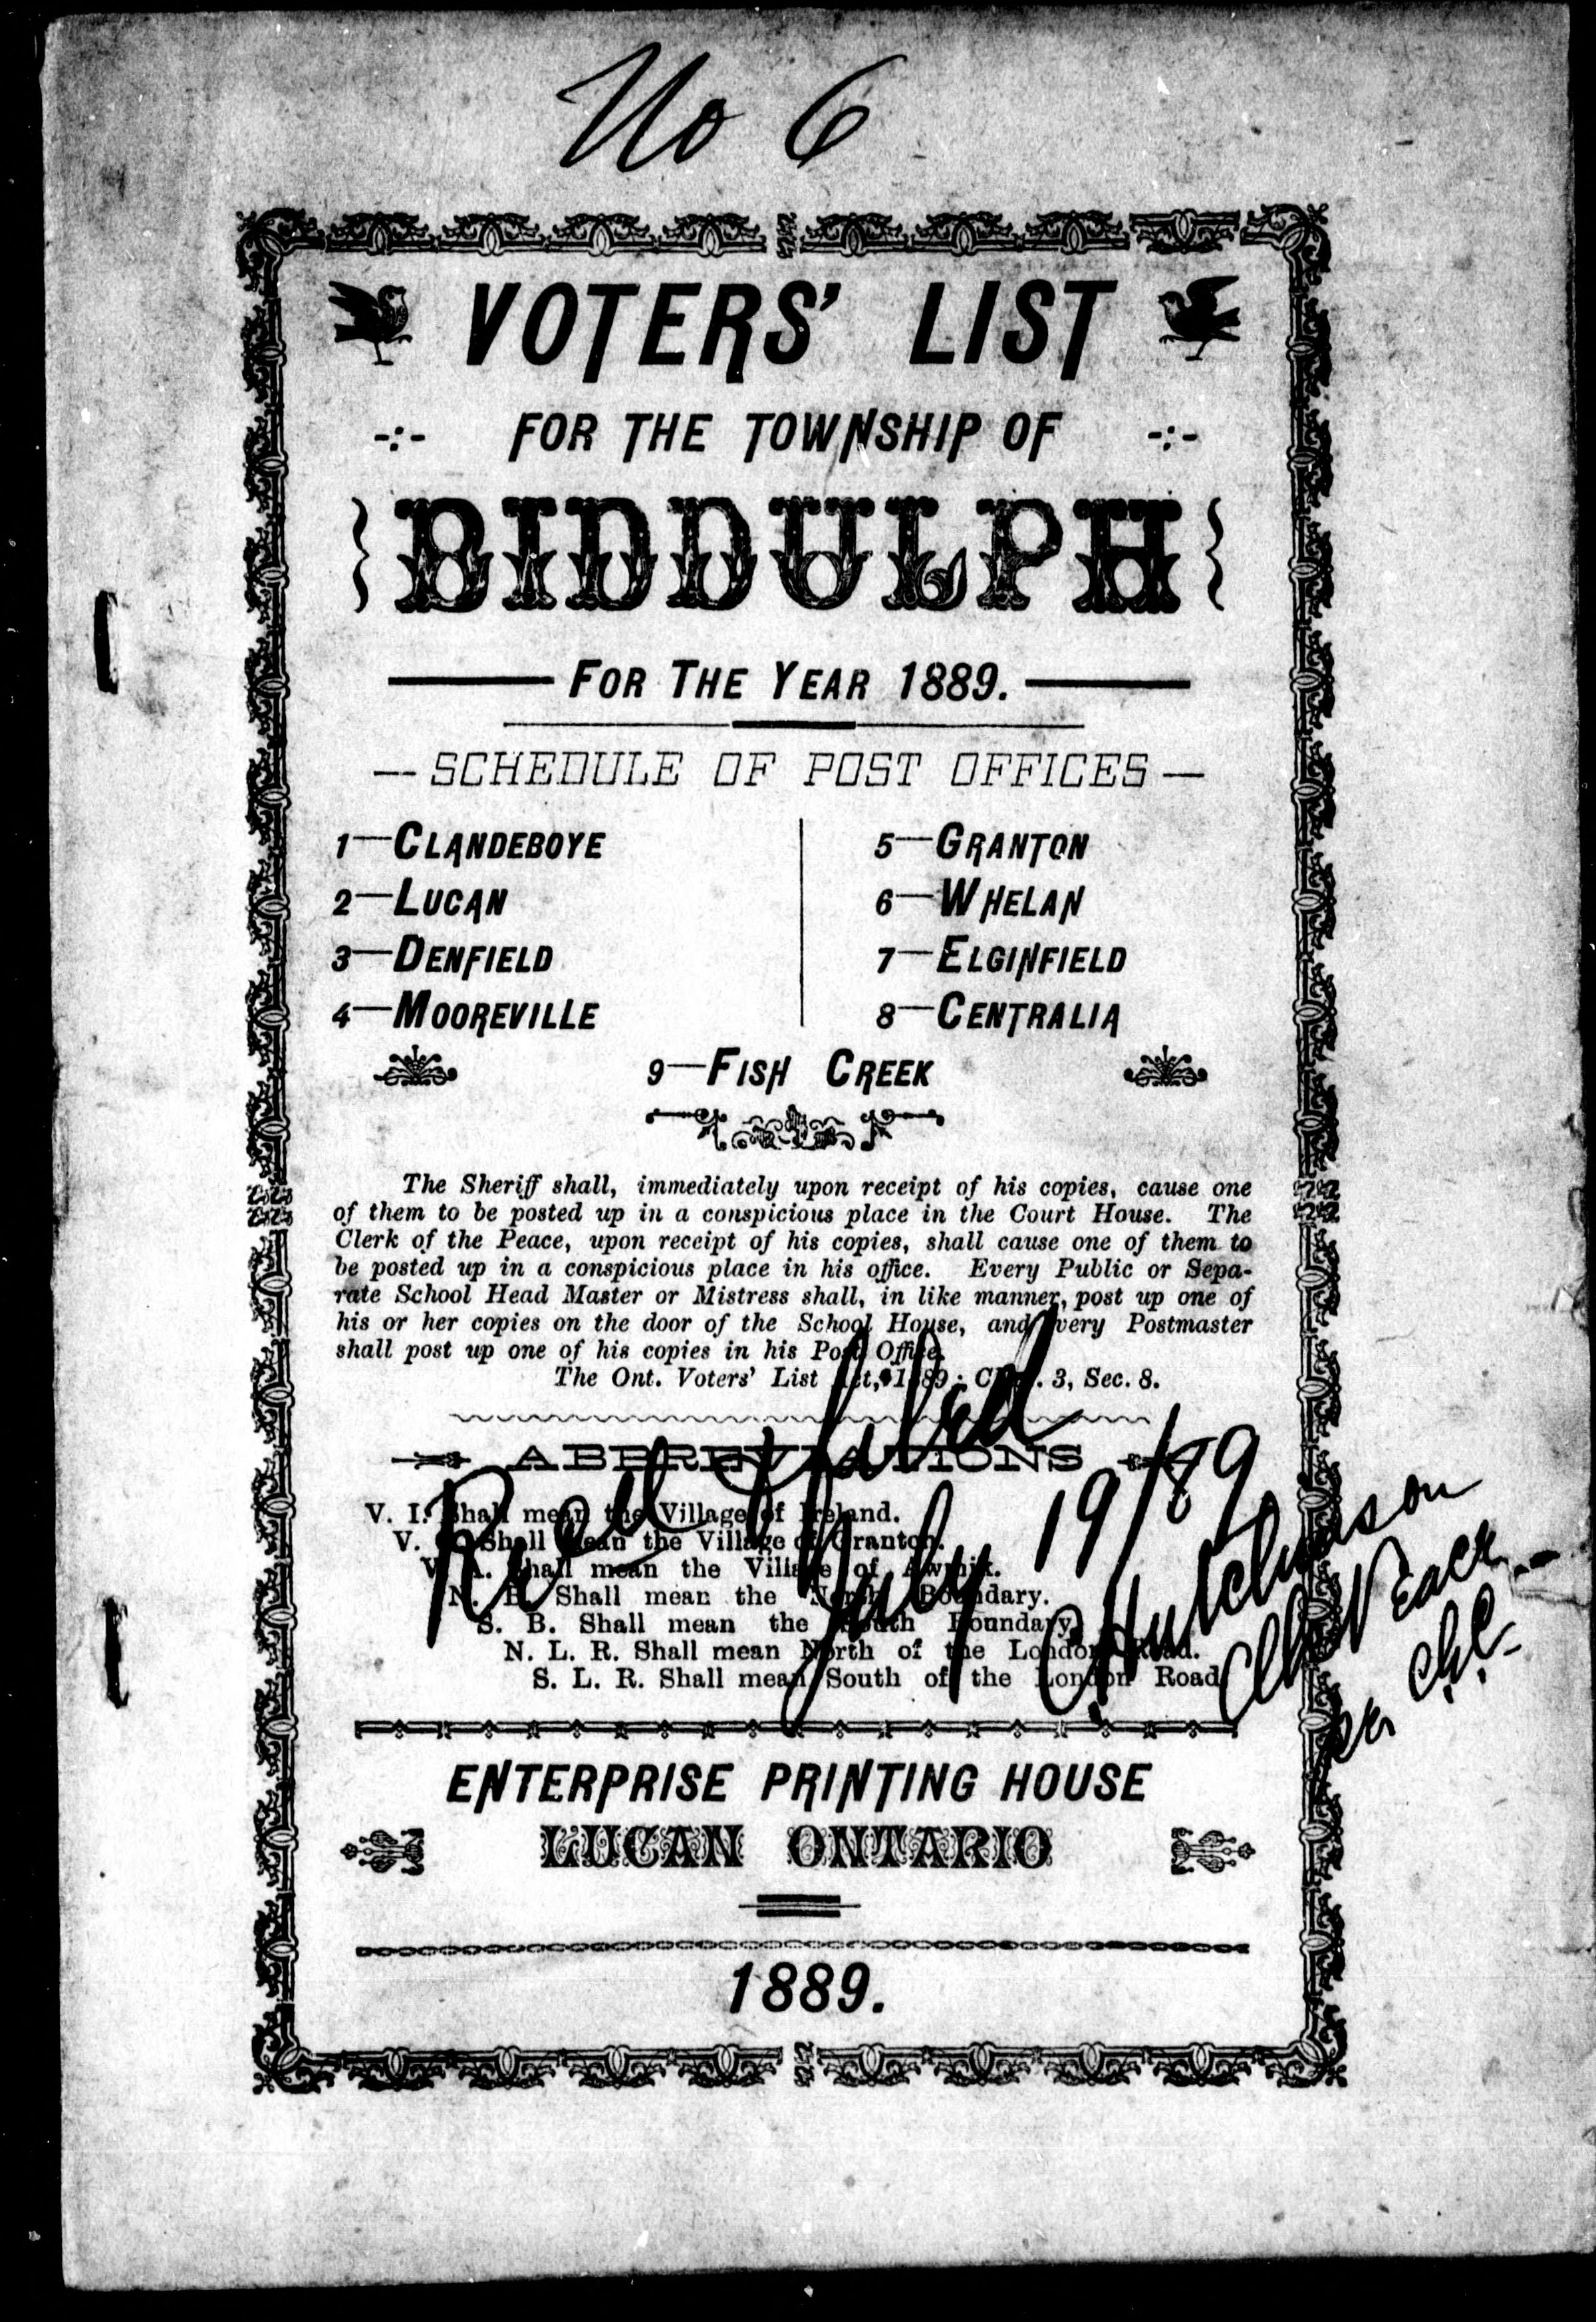 No 6
VOTERS' LIST
-:- FOR THE TOWNSHIP OF -:-
BIDDULPH
FOR THE YEAR 1889.
— SCHEDULE OF POST OFFICES —
1—CLANDEBOYE
2—LUCAN
3—DENFIELD
4—MOOREVILLE
5—GRANTON
6—WHELAN
7—ELGINFIELD
8—CENTRALIA
9—FISH CREEK
The Sheriff shall, immediately upon receipt of his copies, cause one
of them to be posted up in a conspicious place in the Court House. The
Clerk of the Peace, upon receipt of his copies, shall cause one of them to
be posted up in a conspicious place in his office. Every Public or Sepa-
rate School Head Master or Mistress shall, in like manner, post up one of
his or her copies on the door of the School House, and every Postmaster
shall post up one of his copies in his Post Office.
The Ont. Voters' List Act, 1889; Chap. 3, Sec. 8.
ABBREVIATIONS
V. I. Shall mean the Village of Ireland.
V. Shall mean the Village of Granton.
V. Shall mean the Village of
N. B. Shall mean the North Boundary.
S. B. Shall mean the South Boundary.
N. L. R. Shall mean North of the London Road.
S. L. R. Shall mean South of the London Road
Rec'd & filed
July 19/89
Hutchinson
Peace
per
ENTERPRISE PRINTING HOUSE
LUCAN ONTARIO
1889.